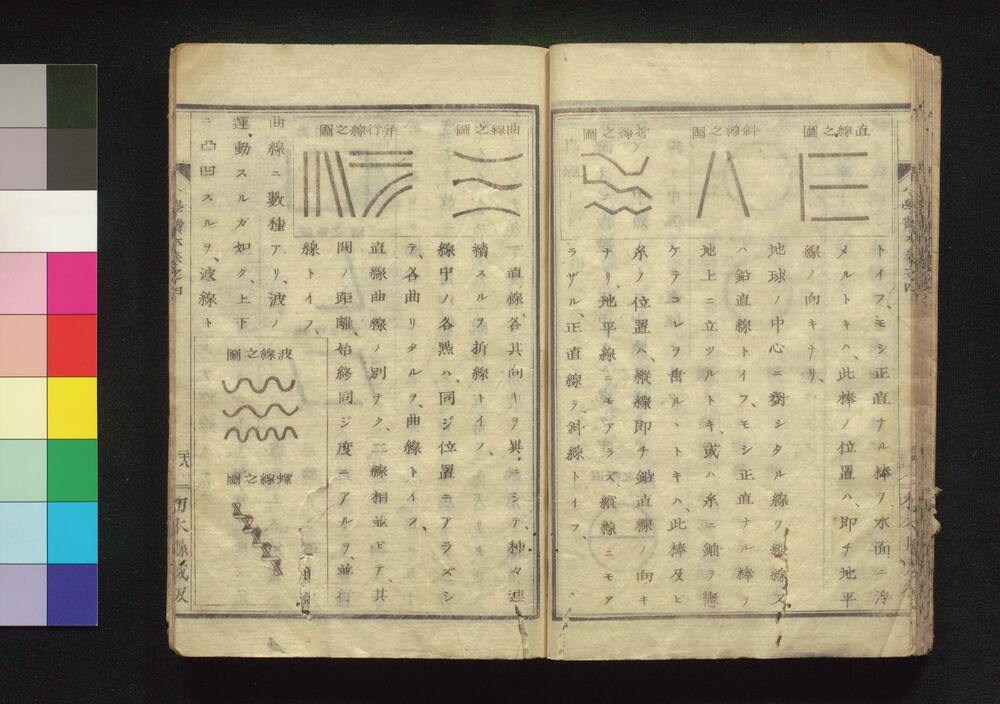 直線之圖
斜線之圖
折線之圖
トイフ、モシ正直ナル棒ヲ水面ニ浮
メルトキハ、此棒ノ位置ハ、即チ地平
線ノ向キナリ、
地球ノ中心ニ對シタル線ヲ縱線又
ハ鉛直線トイフ、モシ正直ナル棒ヲ
地上ニ立ツルトキ、或ハ糸ニ錘ヲ懸
ケテコレヲ垂ルヽトキハ、此棒及ビ
糸ノ位置ハ、縱線即チ鉛直線ノ向キ
ナリ、地平線ニモアラズ縱線ニモア
ラザル、正直線ヲ、斜線トイフ、
曲線之圖
幷行線之圖
直線、各其向キヲ異ニシテ、種々連
續スルヲ折線トイフ、
線中ノ各點ハ、同ジ位置ニアラズシ
テ、各曲リタルヲ、曲線トイフ、
直線曲線ノ別ナク、二線相並ビテ、其
間ノ距離、始終同ジ度ニアルヲ、並行
線トイフ、
曲線ニ數種アリ、波ノ
運動スルガ如ク、上下
ニ凸凹スルヲ、波線ト
波線之圖
螺線之圖